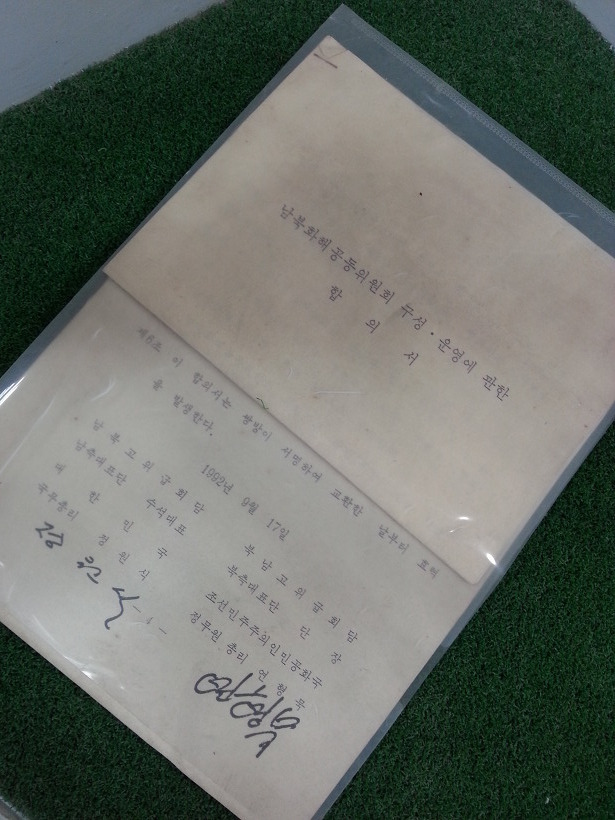 남북화해공동위원회 구성·운영에 관한
합 의 서
제6조 이 합의서는 쌍방이 서명하여 교환한 날부터 효력
을 발생한다.
1992년 9월 17일
남 북 고 위 급 회 담
남측대표단 수석대표
대 한 민 국
국무총리 정 원 식
정 원 식
북 남 고 위 급 회 담
북측대표단 단 장
조선민주주의인민공화국
정무원 총리 연 형 묵